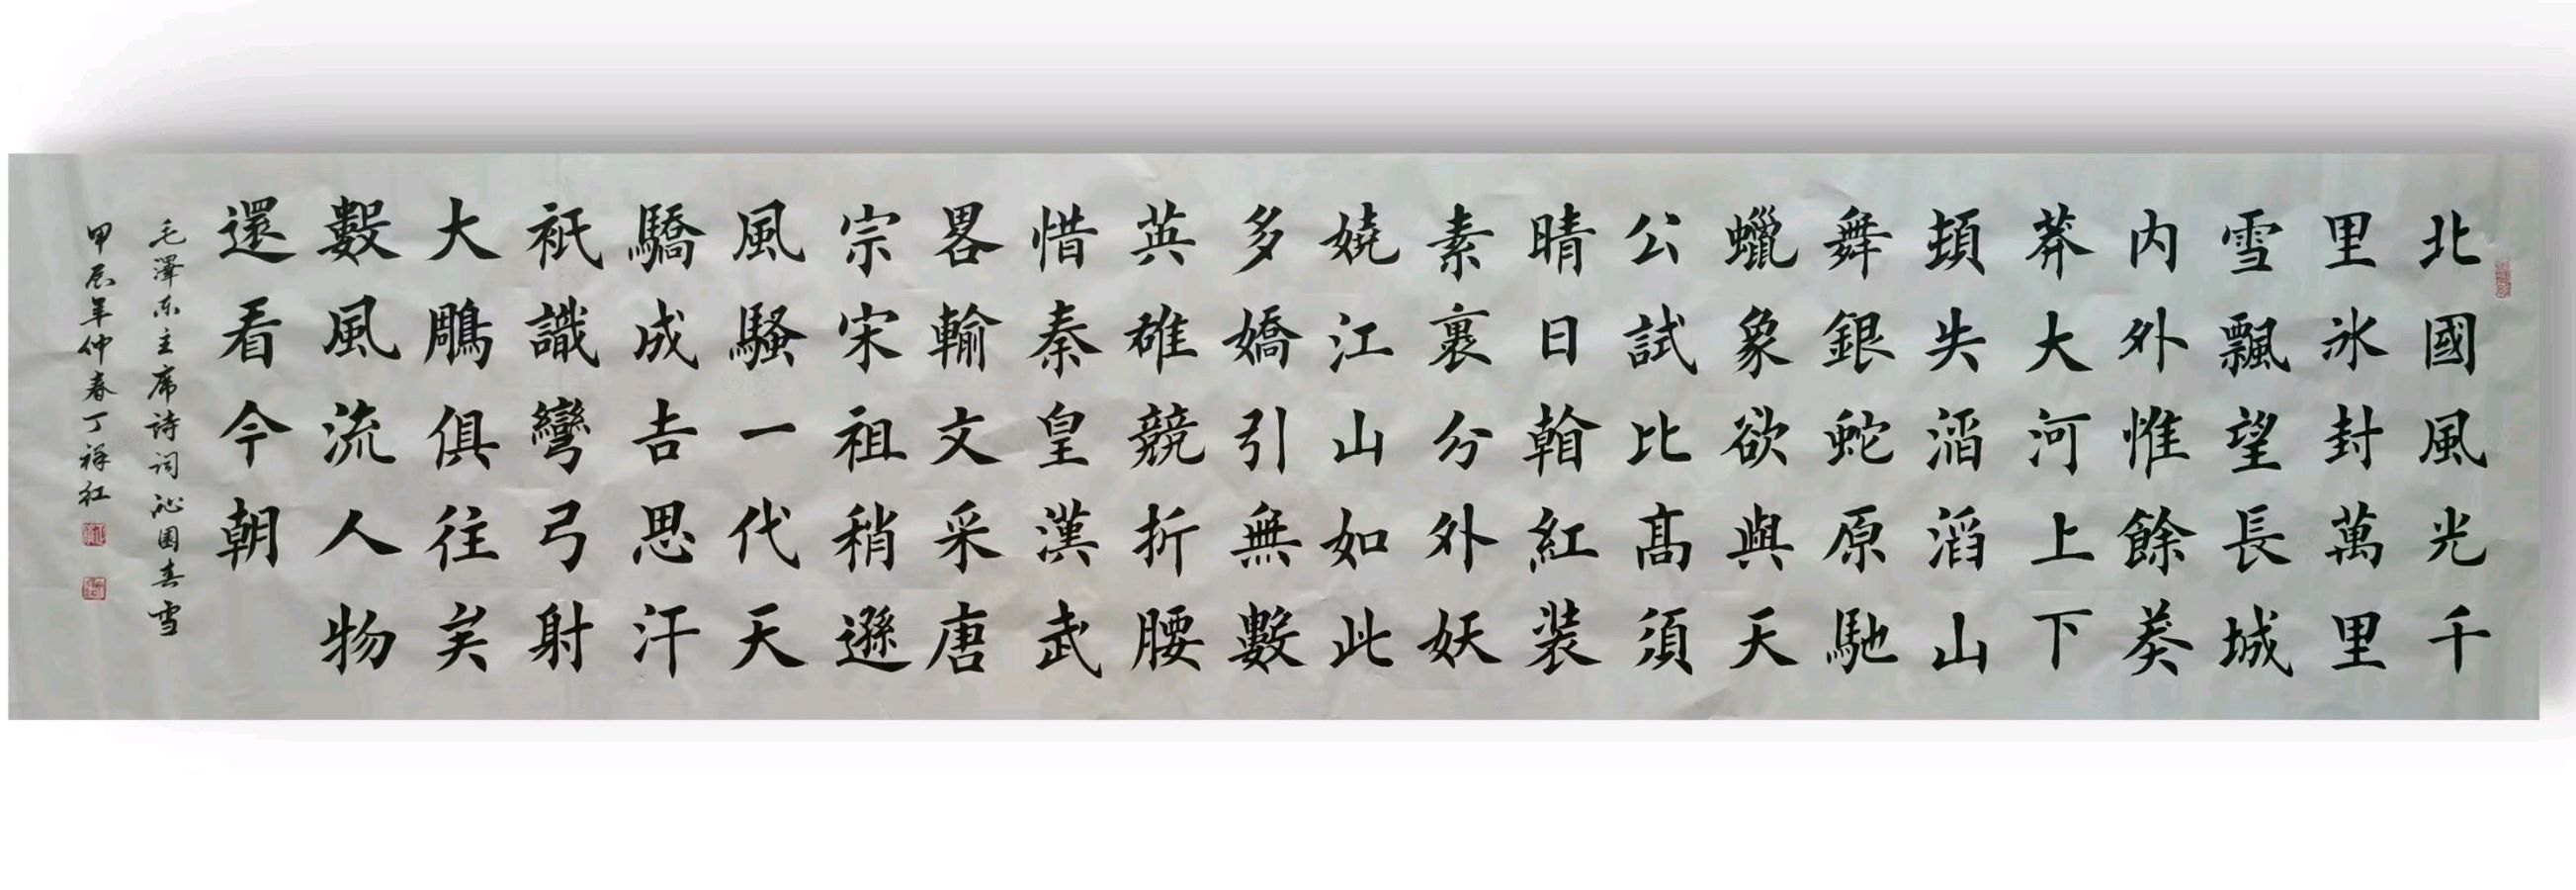 北國風光千
里冰封萬里
雪飄望長城
内外惟餘莽
莽大河上下
頓失滔滔山
舞銀蛇原馳
蠟象欲與天
公試比髙須
晴日看紅裝
素裹分外妖
嬈江山如此
多嬌引無數
英雄競折腰
惜秦皇漢武
畧輸文采唐
宗宋祖稍遜
風騷一代天
驕成吉思汗
衹識彎弓射
大鵰俱往矣
數風流人物
還看今朝
毛澤东主席诗词沁園春雪
甲辰年仲春丁祥红